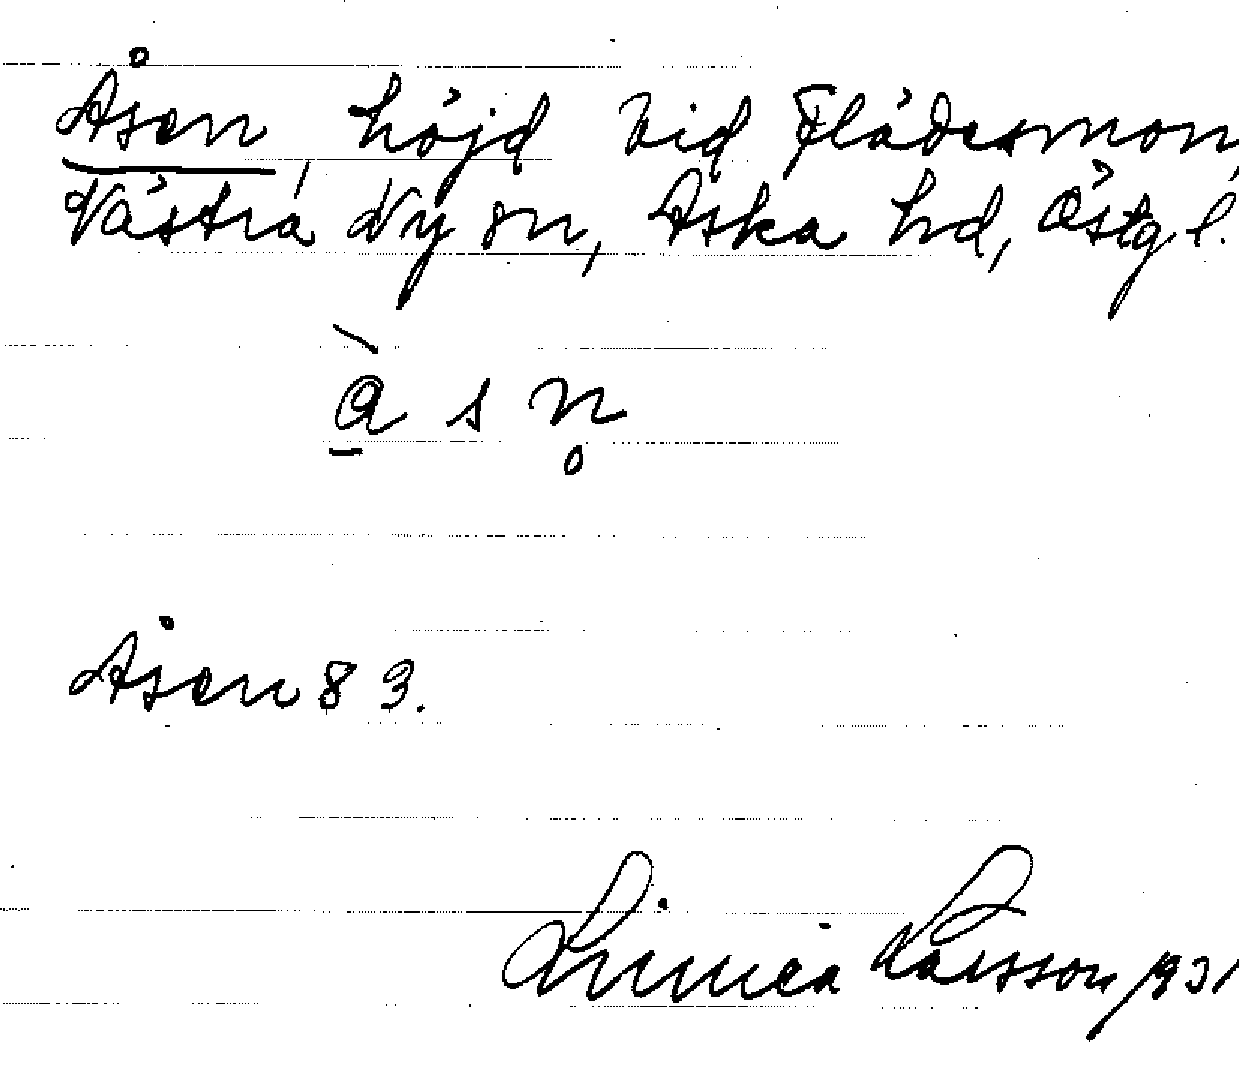 Åsen, höjd vid Flådesmon,
Västra Ny sn, Aska hd, Östg l.
å s n̥
Åsen 83.
Linnea Larsson 1931